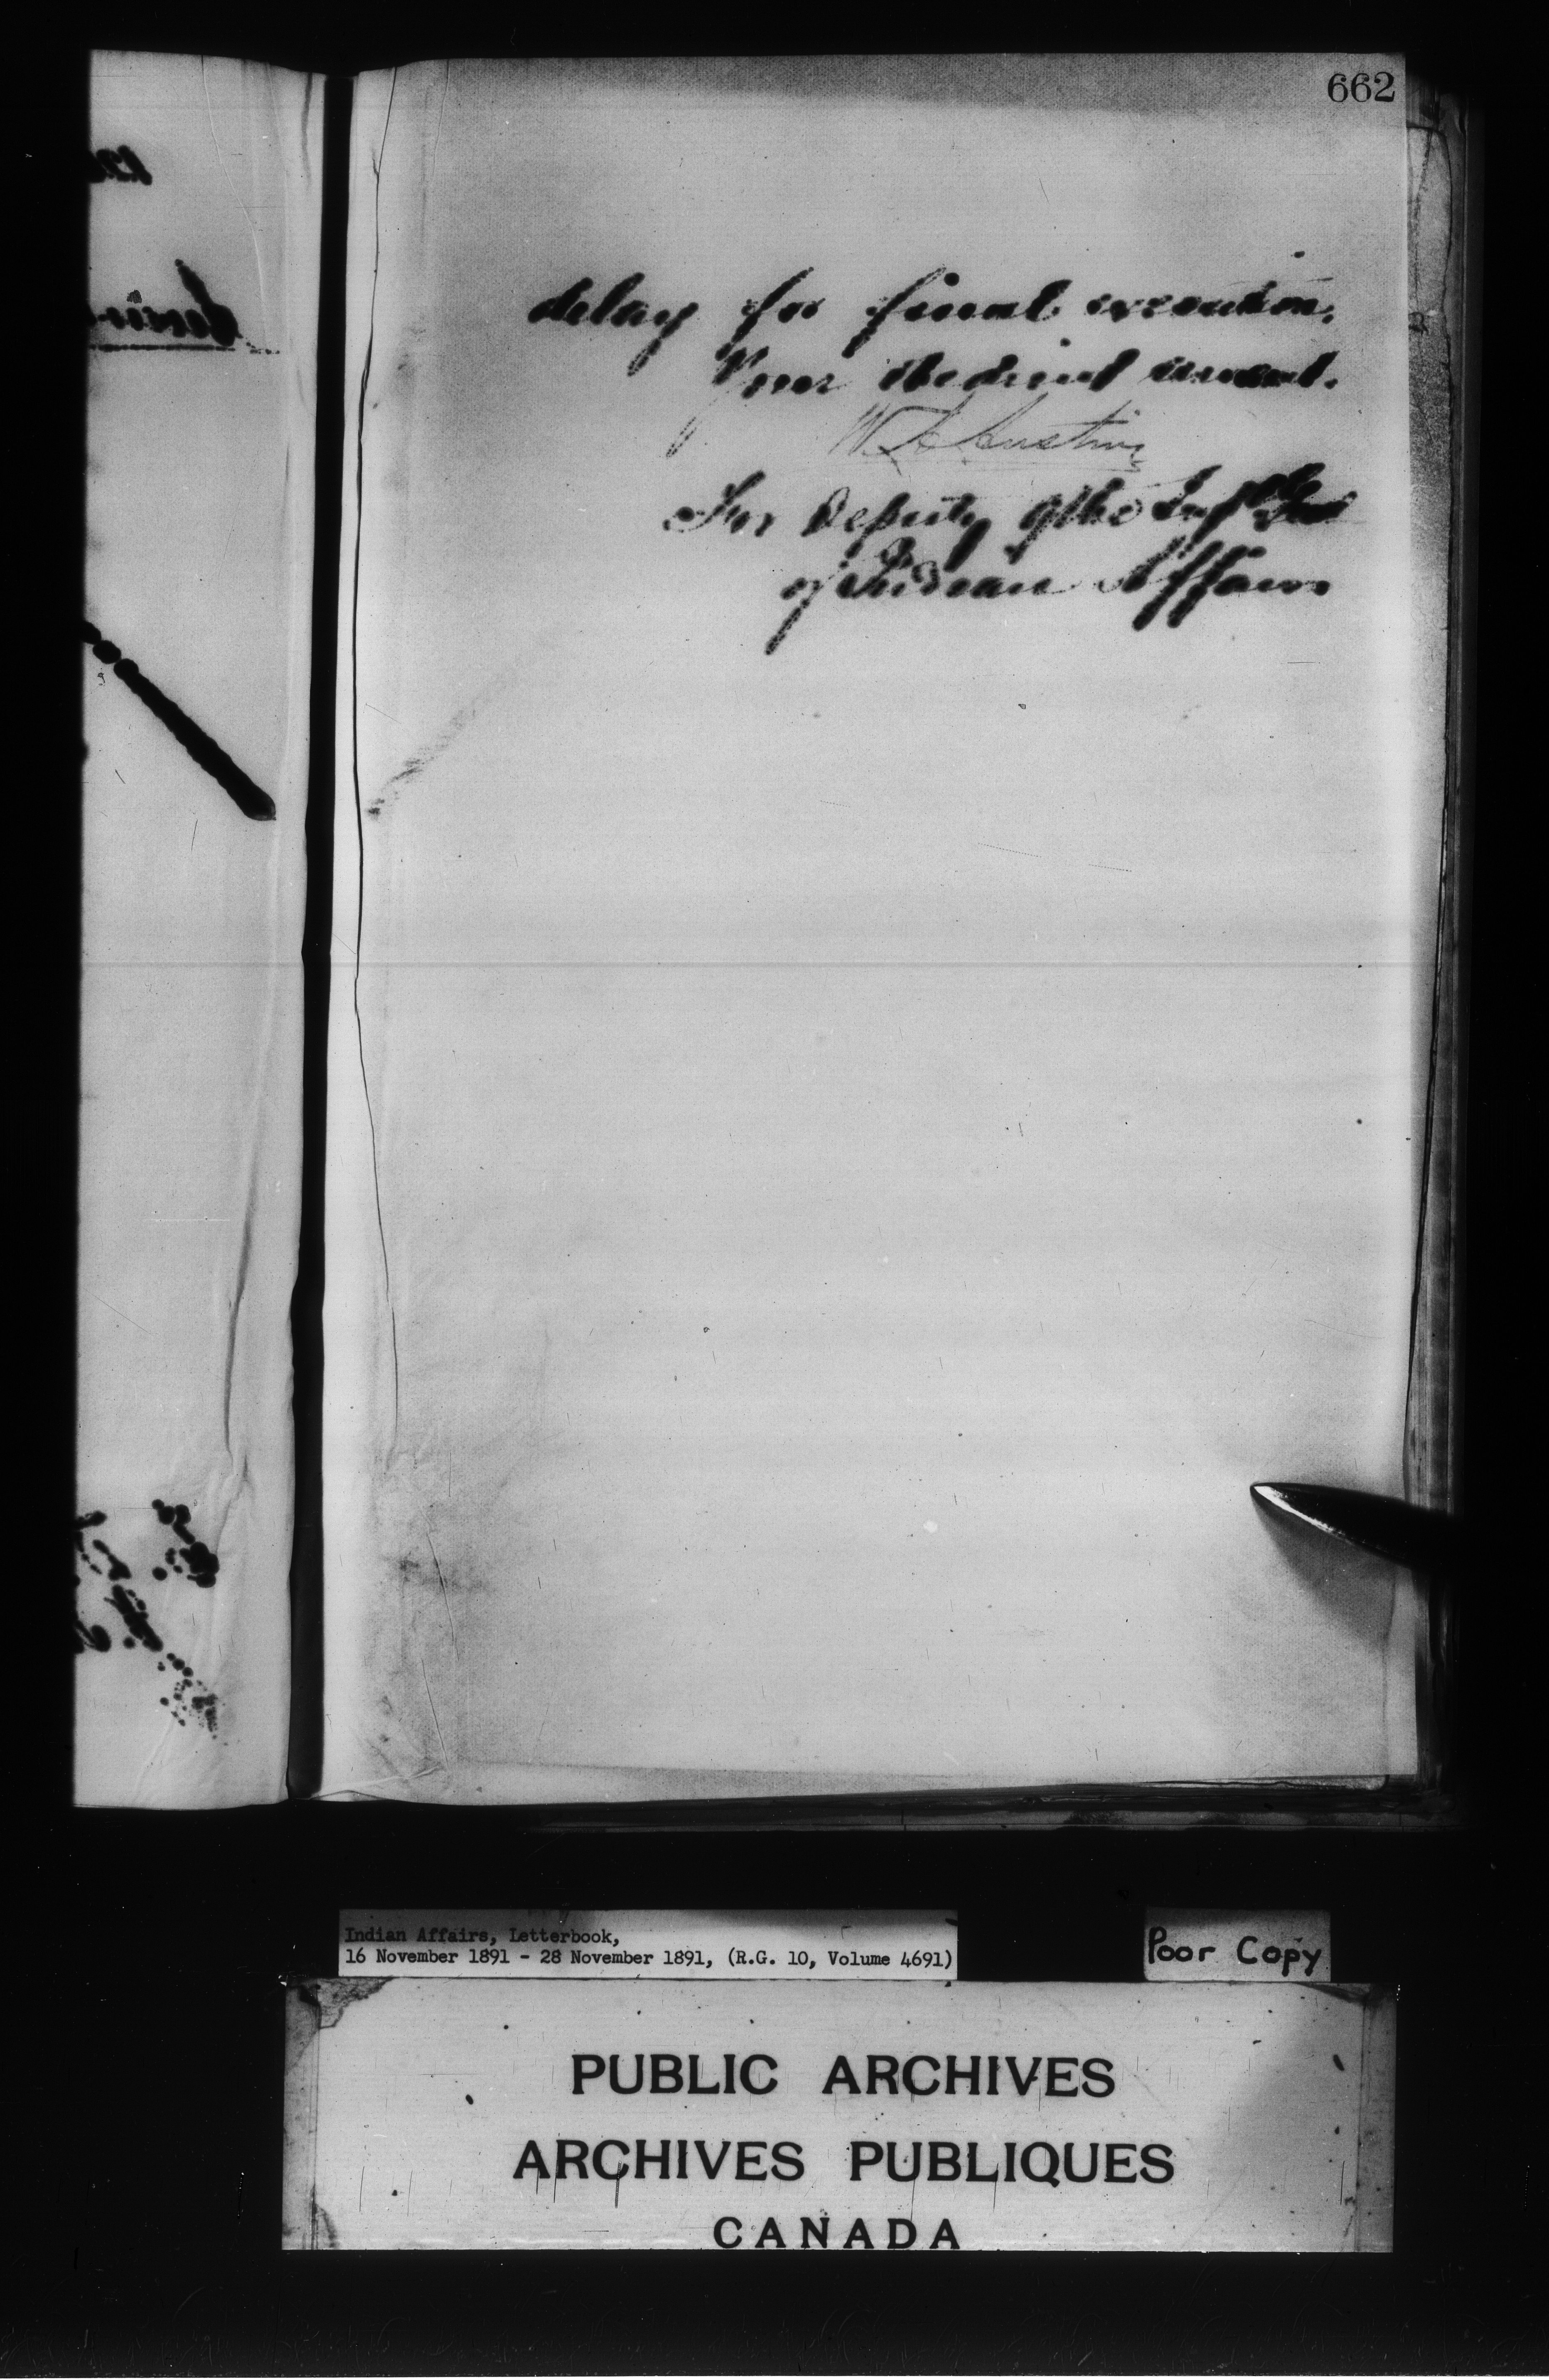 662
delay for final execution.
Your obedient servant.
W. A. Austin
For Deputy of the Supt Gen
of Indian Affairs
Indian Affairs, Letterbook,
16 November 1891 - 28 November 1891, (R.G. 10, Volume 4691)
Poor Copy
PUBLIC ARCHIVES
ARCHIVES PUBLIQUES
CANADA